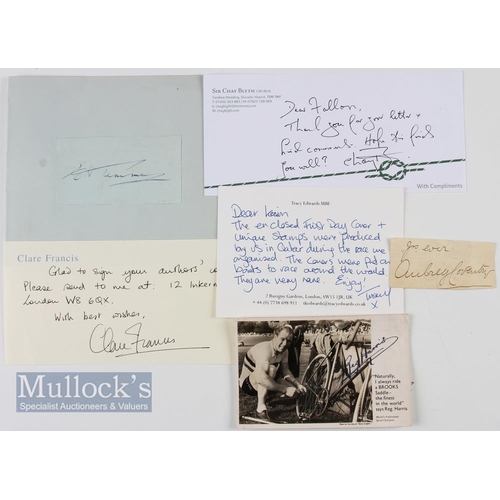 SIR CHAY BLYTH CBE BEM
Dear Fallon,
Thank you for your letter &
kind comments. Hope this finds
you well?
With Compliments
Tracy Edwards MBE
Dear Kevin
The enclosed First Day Cover +
unique stamps were produced
by us in Qatar during the race we
organised. The covers were put on
boats to race around the world
They are very rare. Enjoy!
Tracy
x
7 Parsons Gardens, London, SW15 1JR, UK
Clare Francis
Glad to sign your authors'
Please send to me at: 12
London W8 6QX.
With best wishes,
Clare Francis
Yrs ever
Aubrey
Naturally,
I always ride
a BROOKS
Saddle -
the finest
in the world"
says Reg. Harris
Mullock's
Specialist Auctioneers & Valuers